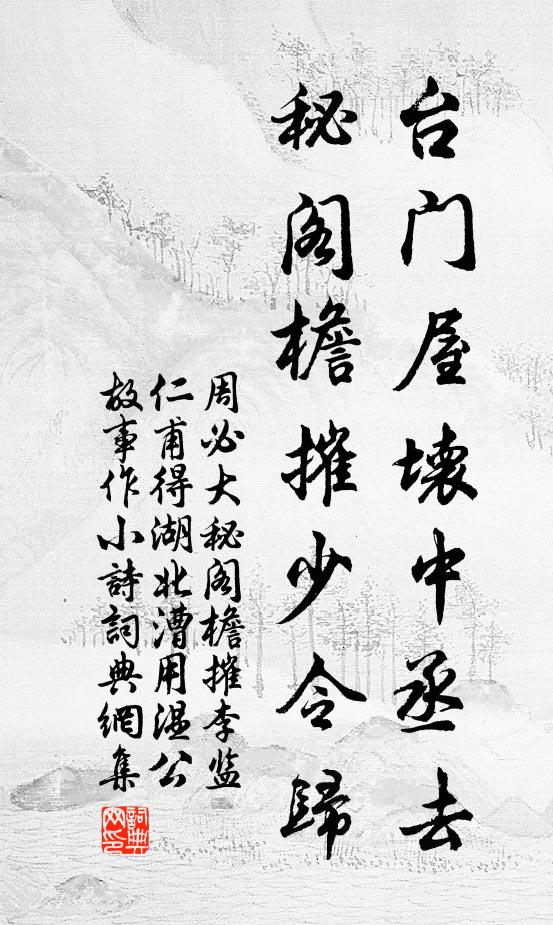 台门屋壞中丞去
秘阁檐摧少令歸
周必大秘阁檐摧李监
仁甫得湖北漕用温公
故事作小詩詞典網集
詞典
网印